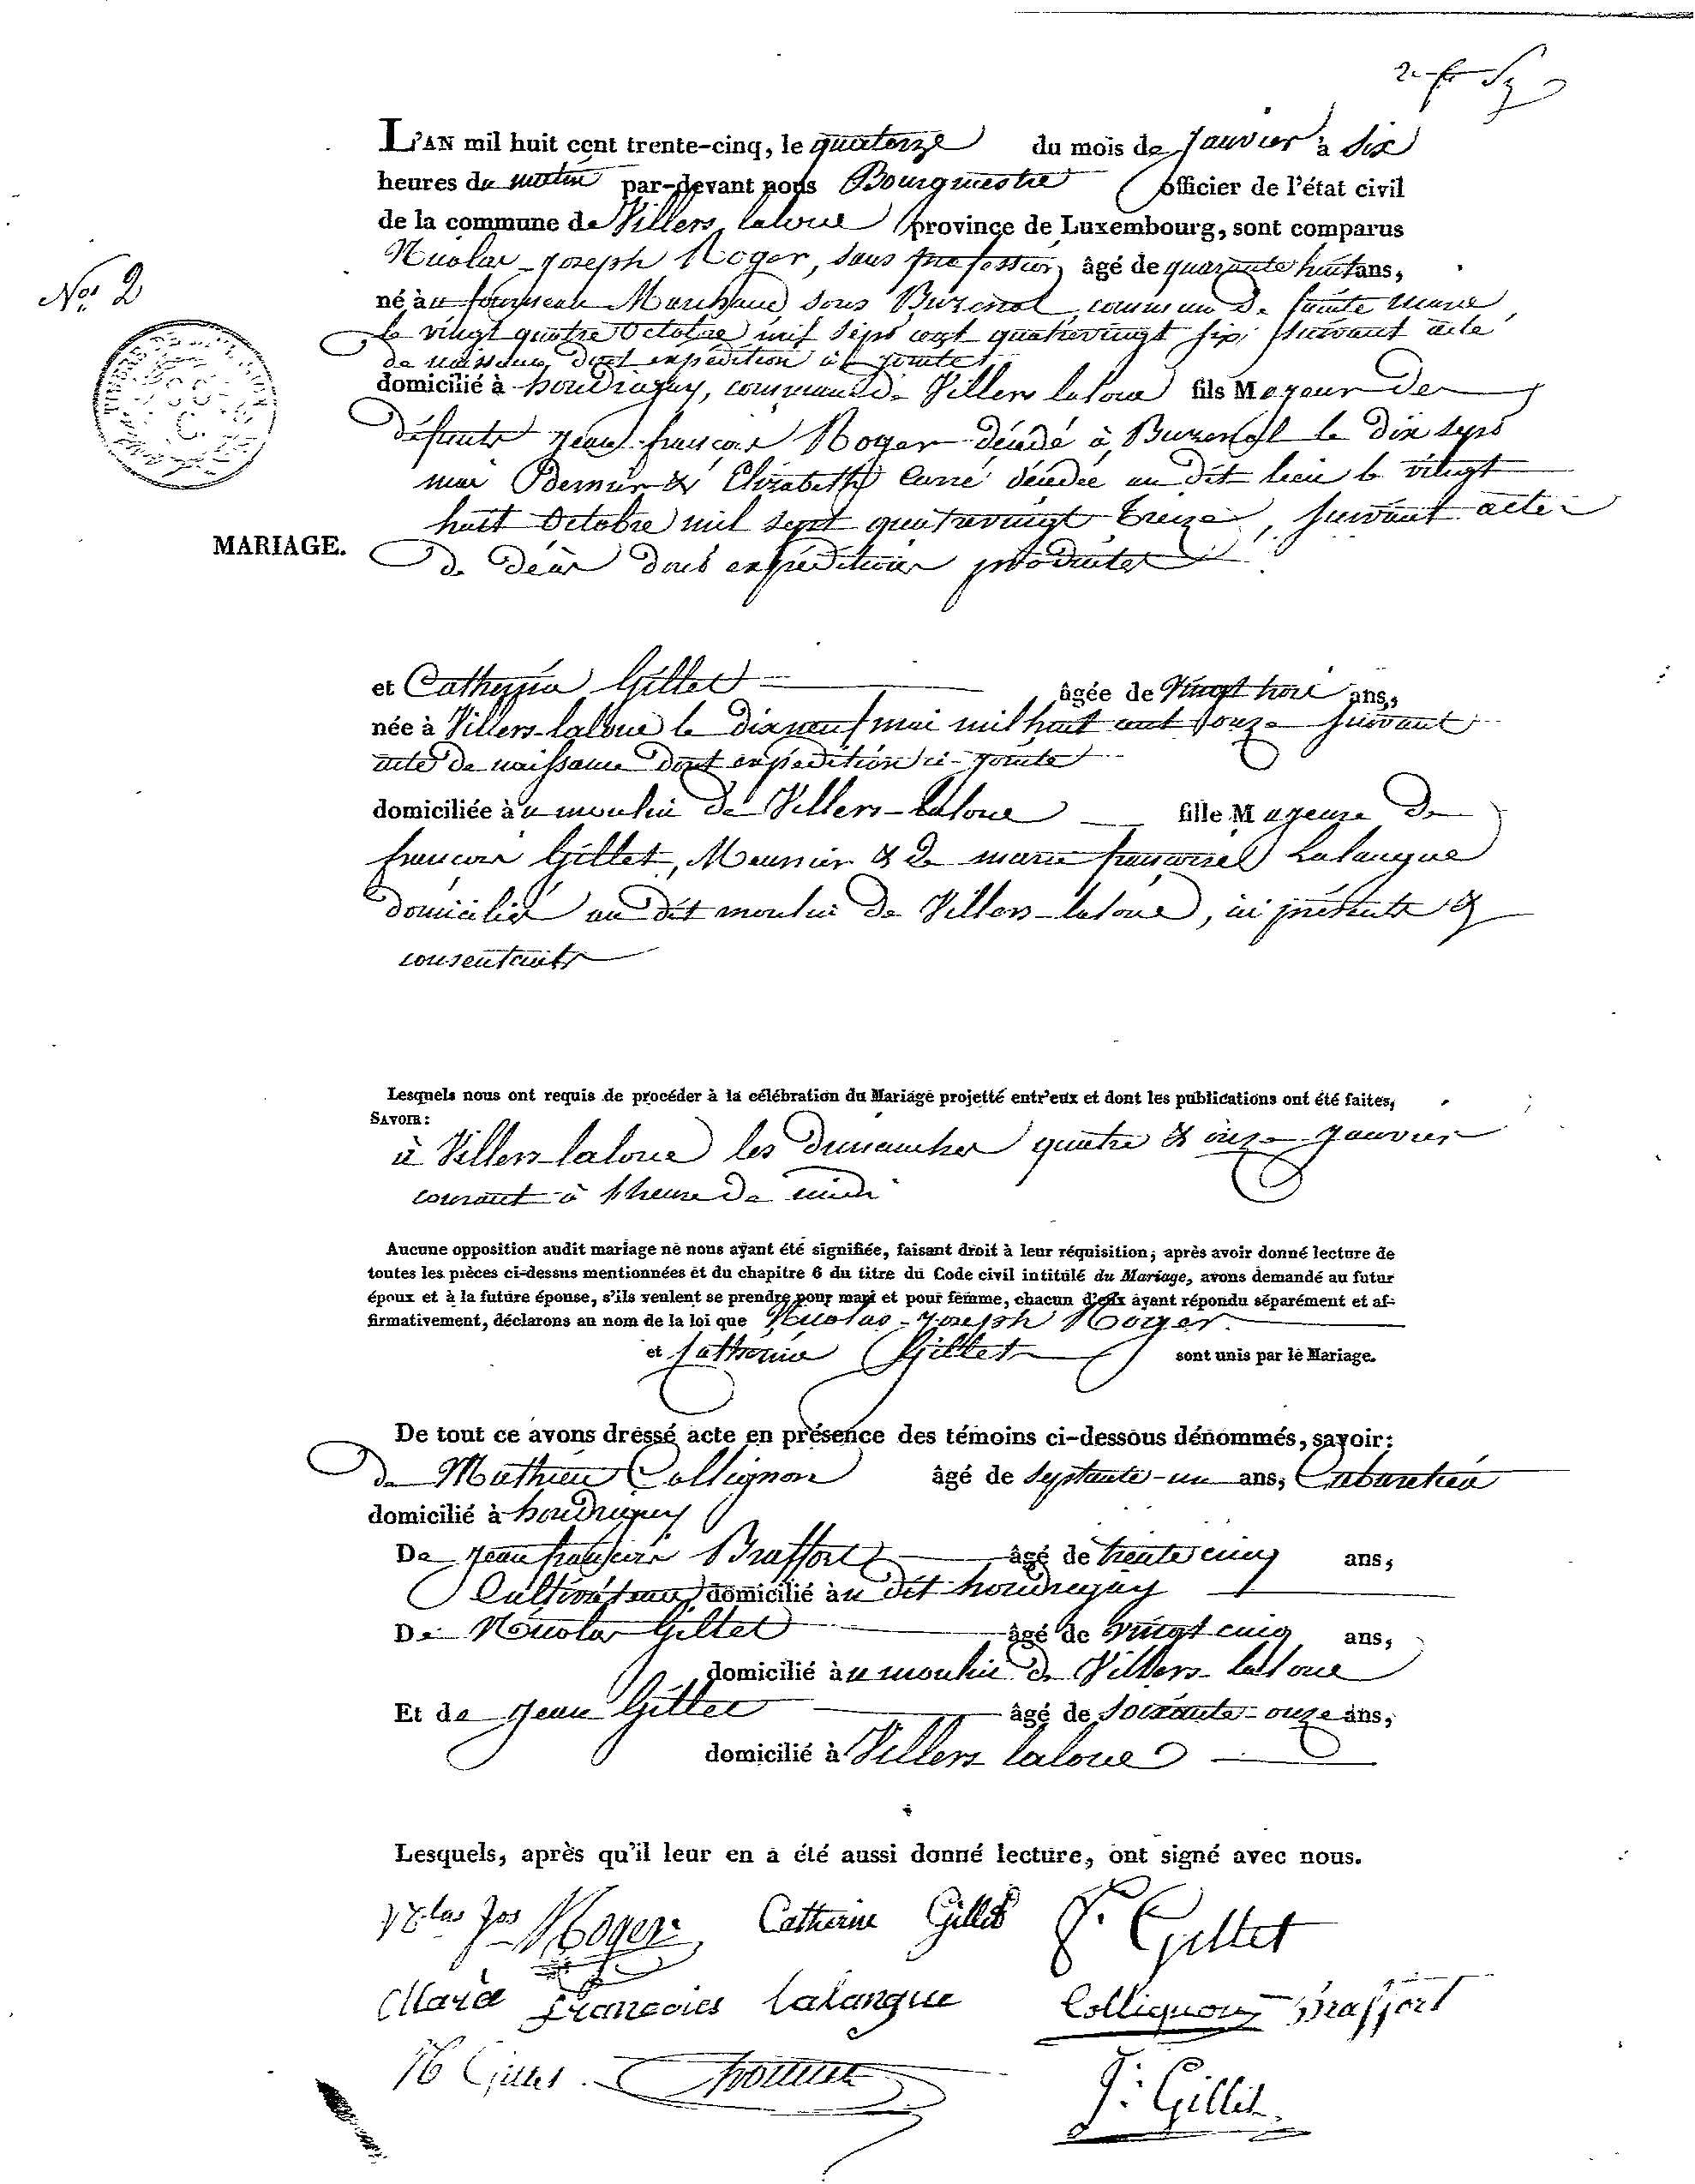 L'AN mil huit cent trente-cinq, le quatorze du mois de janvier à Six
heures du matin par-devant nous Bourgmestre officier de l'état civil
de la commune de Villers laloue province de Luxembourg, sont comparus
Nicolas-Joseph Roger, sans profession, âgé de quarante huit ans,
N° 2
né au fourneau Marchand sous Buzenol, commune de Sainte Marie
le vingt quatre Octobre mil sept cent quatrevingt six, suivant acte
de naissance dont expédition ci jointe
domicilié à houdrigny, commune de Villers laloue fils Mageur de
défunts jean françois Roger décédé à Buzenol le dix sept
mai dernier & Elizabeth Carré décédée au dit lieu le vingt
huit Octobre mil sept quatrevingt treize, suivant actes
MARIAGE.
de décès dont expéditions produites
et Catherine Gillet âgée de vingt trois ans,
née à Villers-laloue le dixneuf mai mil huit cent onze suivant
acte de naissance dont expédition ci-jointe
domiciliée au moulin de Villers-laloue fille Mageure de
françois Gillet, Meunier & de marie françoise Lalangue
domiciliés au dit moulin de Villers-laloue, ici présents &
consentants
Lesquels nous ont requis de procéder à la célébration du Mariage projetté entr'eux et dont les publications ont été faites,
SAVOIR:
à Villers-laloue les dimanches quatre & onze janvier
courant à l'heure de midi
Aucune opposition audit mariage ne nous ayant été signifiée, faisant droit à leur réquisition; après avoir donné lecture de
toutes les pièces ci-dessus mentionnées et du chapitre 6 du titre du Code civil intitulé du Mariage, avons demandé au futur
époux et à la future épouse, s'ils veulent se prendre pour mari et pour femme, chacun d'eux ayant répondu séparément et af-
firmativement, déclarons au nom de la loi que Nicolas-Joseph Roger
et Catherine Gillet sont unis par le Mariage.
De tout ce avons dressé acte en présence des témoins ci-dessous dénommés, savoir:
de Mathieu Collignon âgé de septante-un ans, Cabaretier
domicilié à houdrigny
De jean françois Braffort âgé de trente cinq ans,
Cultivateur domicilié au dit houdrigny
De Nicolas Gillet âgé de vingt cinq ans,
domicilié au moulin de Villers-laloue
Et de jean Gillet âgé de soixante-onze ans,
domicilié à Villers laloue
Lesquels, après qu'il leur en a été aussi donné lecture, ont signé avec nous.
Nlas Jos Roger Catherine Gillet F. Gillet
Marie Francoies Lalangue Collignon Braffort
N Gillet
J: Gillet